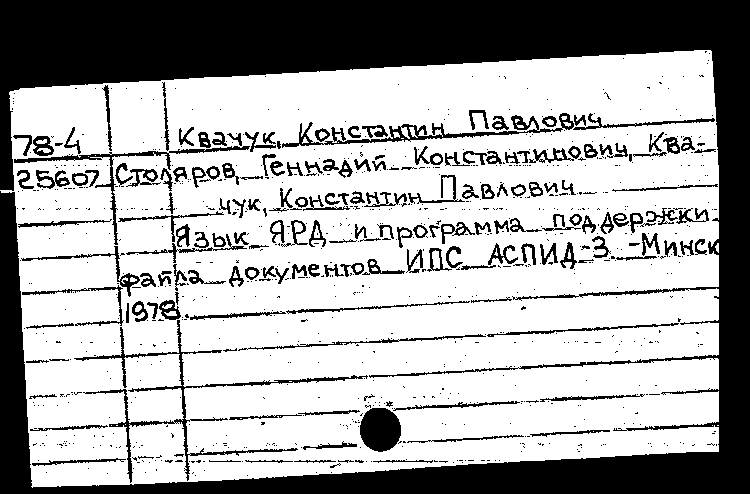 78-4 Квачук, Константин Павлович
25607 Столяров, Геннадий Константинович, Ква-
чук, Константин Павлович
Язык ЯРД и программа поддержки
файла документов ИПС АСПИД-3 - Минск
1978.